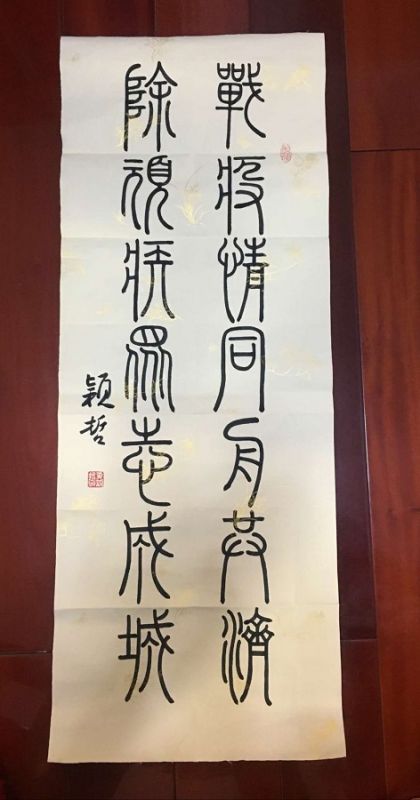 戰疫情同舟共濟
除頑疾眾志成城
穎哲